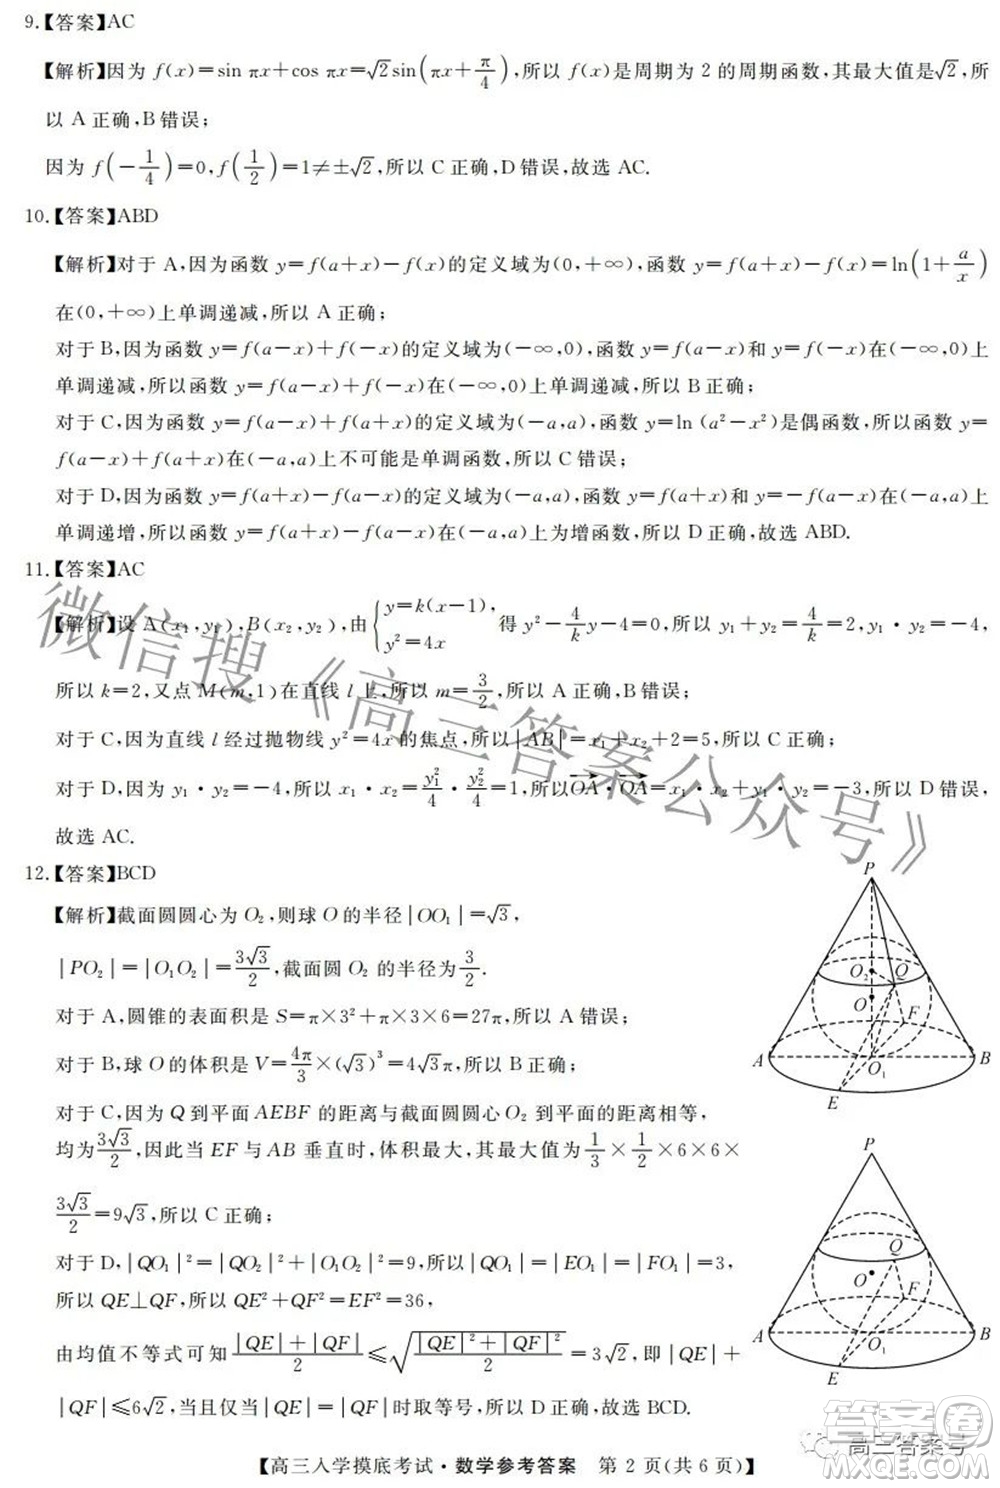 9.【答案】AC
【解析】因为 f(x)=sin πx+cos πx=√2sin(πx+π/4),所以 f(x)是周期为 2 的周期函数,其最大值是√2,所
以 A 正确,B 错误;
因为 f(-1/4)=0,f(1/2)=1≠±√2,所以 C 正确,D 错误,故选 AC.
10.【答案】ABD
【解析】对于 A,因为函数 y=f(a+x)-f(x)的定义域为(0,+∞),函数 y=f(a+x)-f(x)=ln(1+a/x)
在(0,+∞)上单调递减,所以 A 正确;
对于 B,因为函数 y=f(a-x)+f(-x)的定义域为(-∞,0),函数 y=f(a-x)和 y=f(-x)在(-∞,0)上
单调递减,所以函数 y=f(a-x)+f(-x)在(-∞,0)上单调递减,所以 B 正确;
对于 C,因为函数 y=f(a-x)+f(a+x)的定义域为(-a,a),函数 y=ln (a²-x²)是偶函数,所以函数 y=
f(a-x)+f(a+x)在(-a,a)上不可能是单调函数,所以 C 错误;
对于 D,因为函数 y=f(a+x)-f(a-x)的定义域为(-a,a),函数 y=f(a+x)和 y=-f(a-x)在(-a,a)上
单调递增,所以函数 y=f(a+x)-f(a-x)在(-a,a)上为增函数,所以 D 正确,故选 ABD.
11.【答案】AC
【解析】设 A(x₁,y₁),B(x₂,y₂),由{y=k(x-1), y²=4x 得 y²-4/k y-4=0,所以 y₁+y₂=4/k=2,y₁·y₂=-4,
所以 k=2,又点 M(m,1)在直线 l 上,所以 m=3/2,所以 A 正确,B 错误;
对于 C,因为直线 l 经过抛物线 y²=4x 的焦点,所以|AB|=x₁+x₂+2=5,所以 C 正确;
对于 D,因为 y₁·y₂=-4,所以 x₁·x₂=y₁²/4·y₂²/4=1,所以OA·OA=x₁·x₂+y₁·y₂=-3,所以 D 错误,
故选 AC.
12.【答案】BCD
【解析】截面圆圆心为 O₂,则球 O 的半径|OO₁|=√3,
|PO₂|=|O₁O₂|=3√3/2,截面圆 O₂ 的半径为3/2.
对于 A,圆锥的表面积是 S=π×3²+π×3×6=27π,所以 A 错误;
对于 B,球 O 的体积是 V=4π/3×(√3)³=4√3π,所以 B 正确;
对于 C,因为 Q 到平面 AEBF 的距离与截面圆圆心 O₂ 到平面的距离相等,
均为3√3/2,因此当 EF 与 AB 垂直时,体积最大,其最大值为1/3×1/2×6×6×
3√3/2=9√3,所以 C 正确;
对于 D,|QO₁|²=|QO₂|²+|O₁O₂|²=9,所以|QO₁|=|EO₁|=|FO₁|=3,
所以 QE⊥QF,所以 QE²+QF²=EF²=36,
由均值不等式可知(|QE|+|QF|)/2≤√((|QE|²+|QF|²)/2)=3√2,即|QE|+
|QF|≤6√2,当且仅当|QE|=|QF|时取等号,所以 D 正确,故选 BCD.
P
O₂
Q
O
F
A
O₁
B
E
P
Q
O
F
A
O₁
B
E
微信搜《高三答案公众号》
答案圈
高三答案号
【高三入学摸底考试·数学参考答案 第 2 页(共 6 页)】